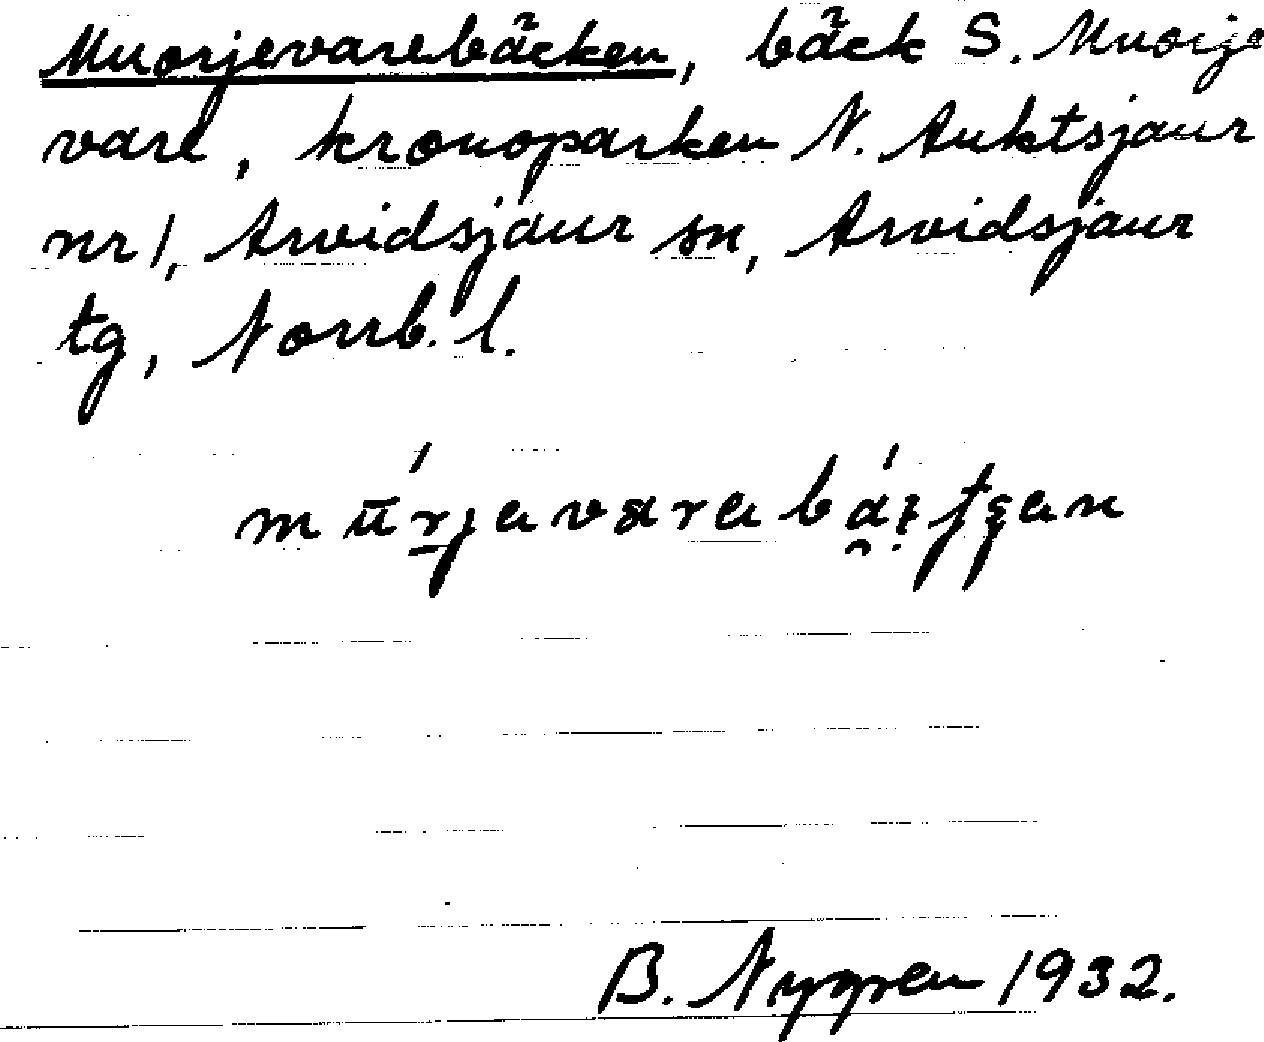 Muorjevarebäcken, bäck S. Muorje
vare, kronoparken N. Auktsjaur
nr 1, Arvidsjaur sn, Arvidsjaur
tg, Norrb. l.
B. Nygren 1932.